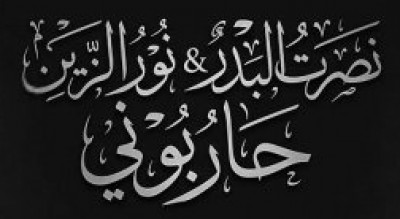 نصرت البدر & نور الزين
حاربوني